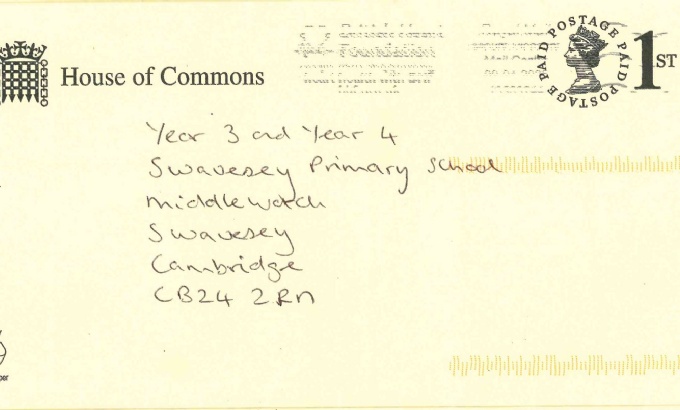 House of Commons
POSTAGE PAID POSTAGE PAID
1ST
Year 3 and Year 4
Swavesey Primary School
Middlewatch
Swavesey
Cambridge
CB24 2RN